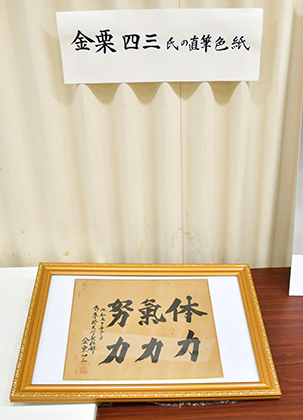 金栗四三氏の直筆色紙
体力
氣力
努力
金栗四三